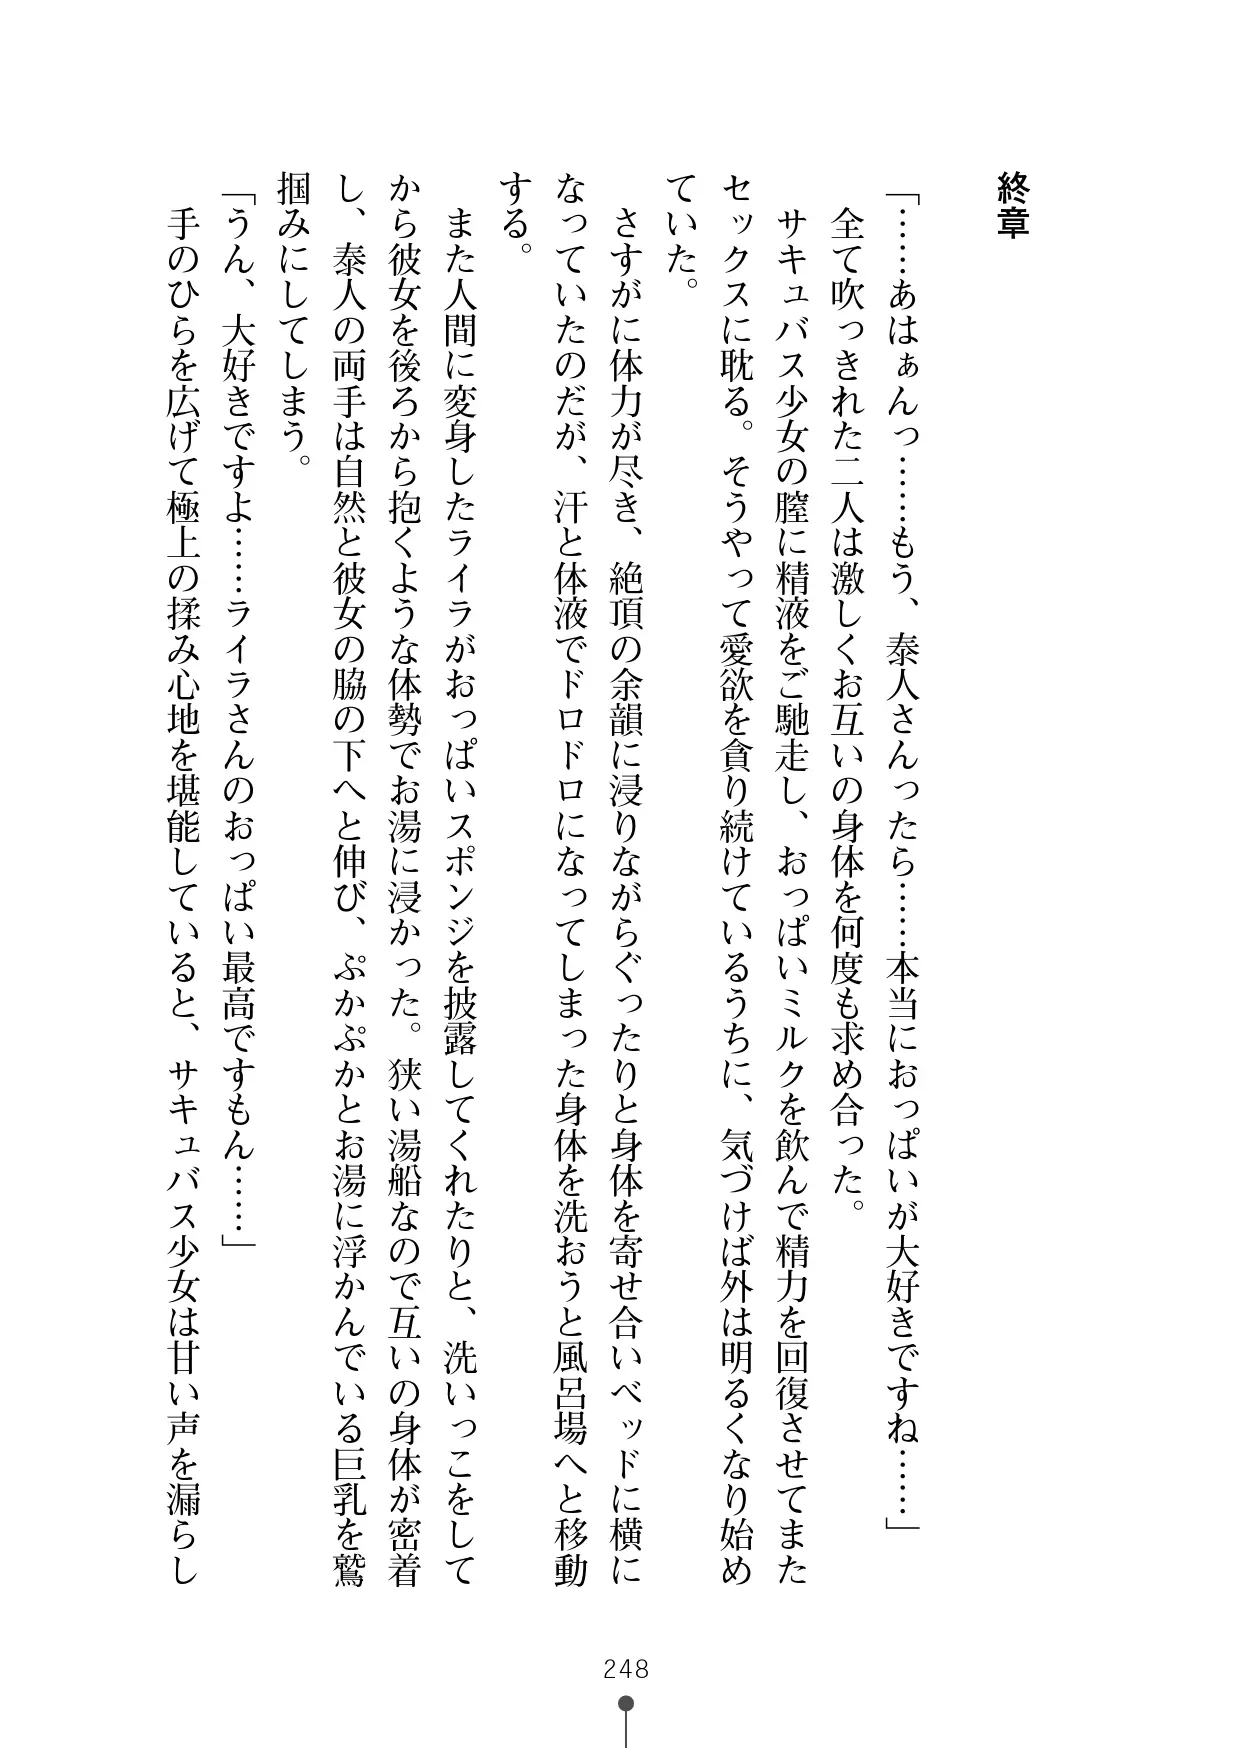 終章
「……あはぁんっ……もう、泰人さんったら……本当におっぱいが大好きですね……」
全て吹っきれた二人は激しくお互いの身体を何度も求め合った。
サキュバス少女の膣に精液をご馳走し、おっぱいミルクを飲んで精力を回復させてまた
セックスに耽る。そうやって愛欲を貪り続けているうちに、気づけば外は明るくなり始め
ていた。
さすがに体力が尽き、絶頂の余韻に浸りながらぐったりと身体を寄せ合いベッドに横に
なっていたのだが、汗と体液でドロドロになってしまった身体を洗おうと風呂場へと移動
する。
また人間に変身したライラがおっぱいスポンジを披露してくれたりと、洗いっこをして
から彼女を後ろから抱くような体勢でお湯に浸かった。狭い湯船なので互いの身体が密着
し、泰人の両手は自然と彼女の脇の下へと伸び、ぷかぷかとお湯に浮かんでいる巨乳を鷲
掴みにしてしまう。
「うん、大好きですよ……ライラさんのおっぱい最高ですもん……」
手のひらを広げて極上の揉み心地を堪能していると、サキュバス少女は甘い声を漏らし
248